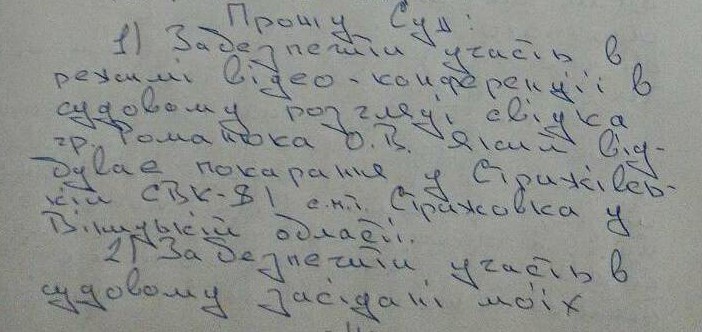 Прошу Суд:
1) Забезпечити участь в
режимі відео-конференції в
судовому розгляді свідка
гр. Романюка О.В. який від-
буває покарання у Стрижівсь-
кій СВК-81 с.м.т. Стрижовка у
Вінницькій області.
2) Забезпечити участь в
судовому засідані моїх